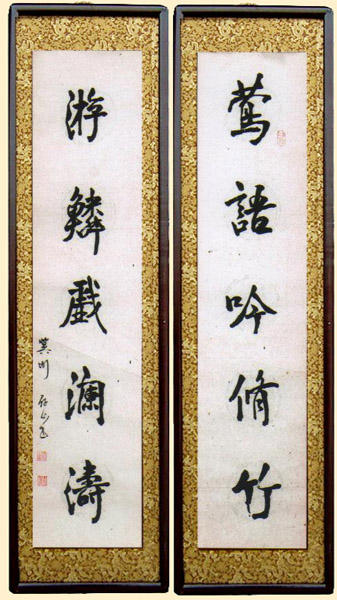 莺語吟脩竹
游鱗戲瀾濤